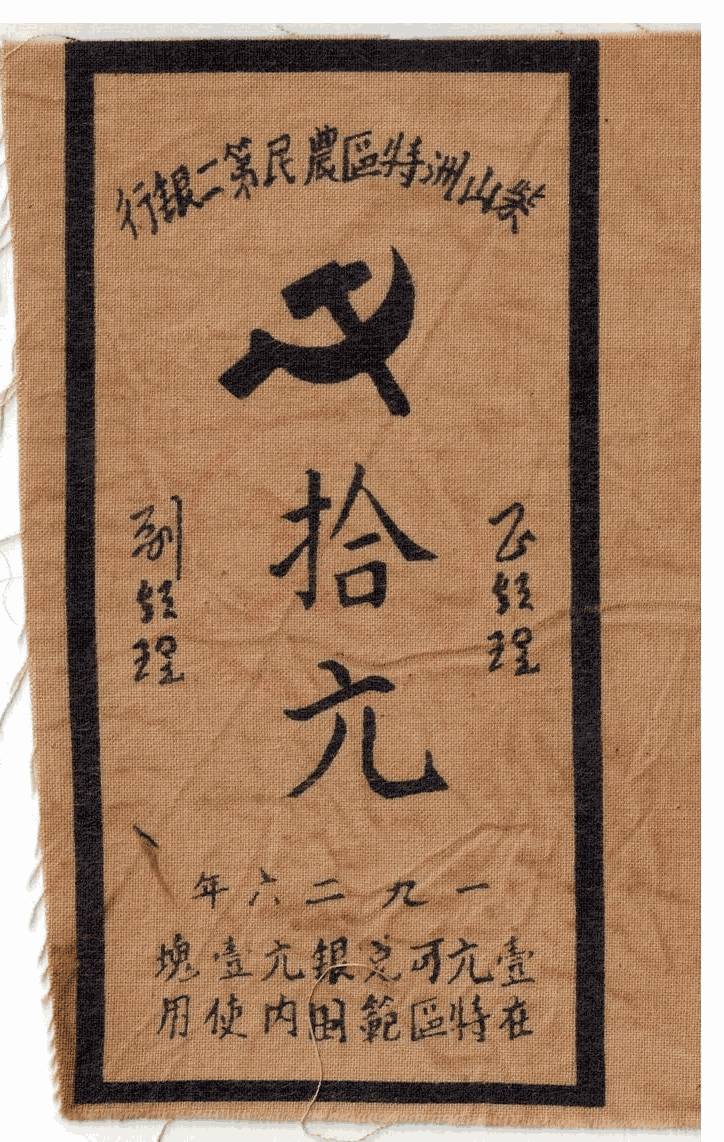 柴山洲特區農民第二銀行
拾元
正經理
副經理
一九二六年
壹元可兑銀元壹塊
在特區範圍内使用